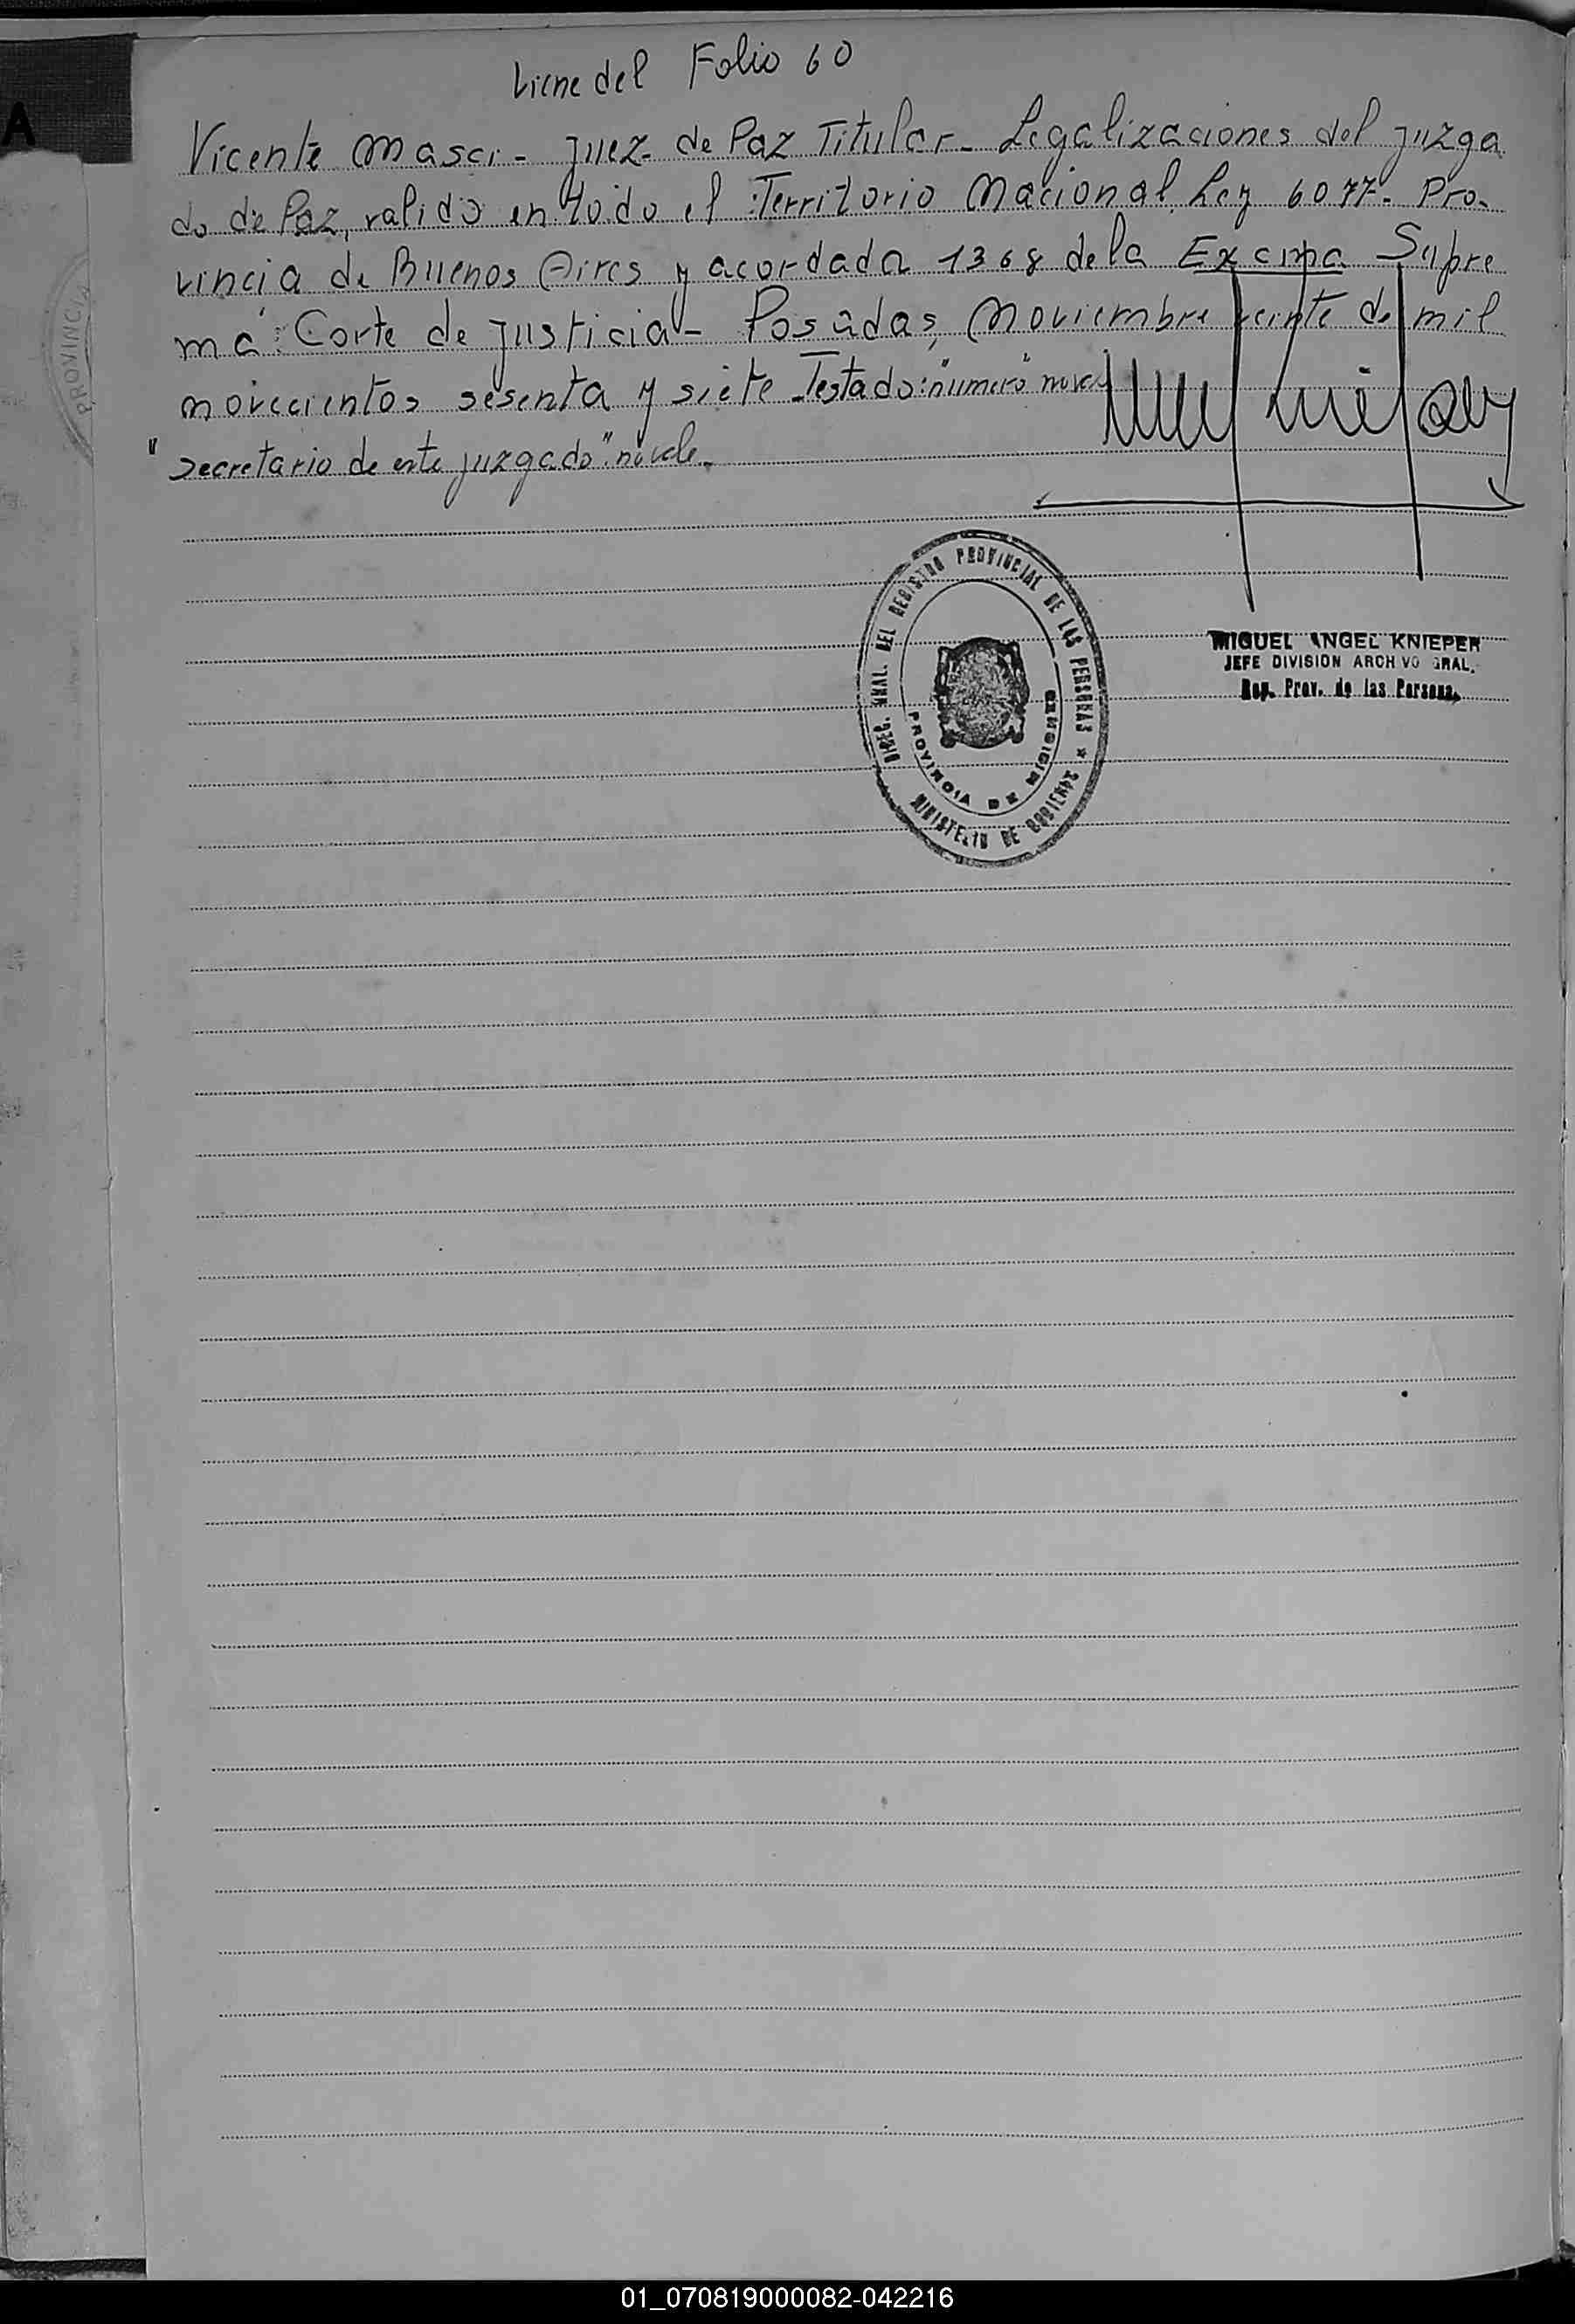 Viene del Folio 60
Vicente Masci - Juez de Paz Titular - Legalizaciones del Juzga
do de Paz, valido en todo el Territorio Nacional. Ley 6077- Pro-
vincia de Buenos Aires y acordada 1368 de la Excma Supre
ma Corte de Justicia - Posadas, Noviembre veinte de mil
novecientos sesenta y siete - Testado: "numero" no vale
"secretario de este juzgado" no vale.
DIREC. GRAL. DEL REGISTRO PROVINCIAL DE LAS PERSONAS *
MINISTERIO DE GOBIERNO
PROVINCIA DE MISIONES
MIGUEL ANGEL KNIEPER
JEFE DIVISION ARCHIVO GRAL.
Rep. Prov. de las Personas
PROVINCIA
A
01_070819000082-042216